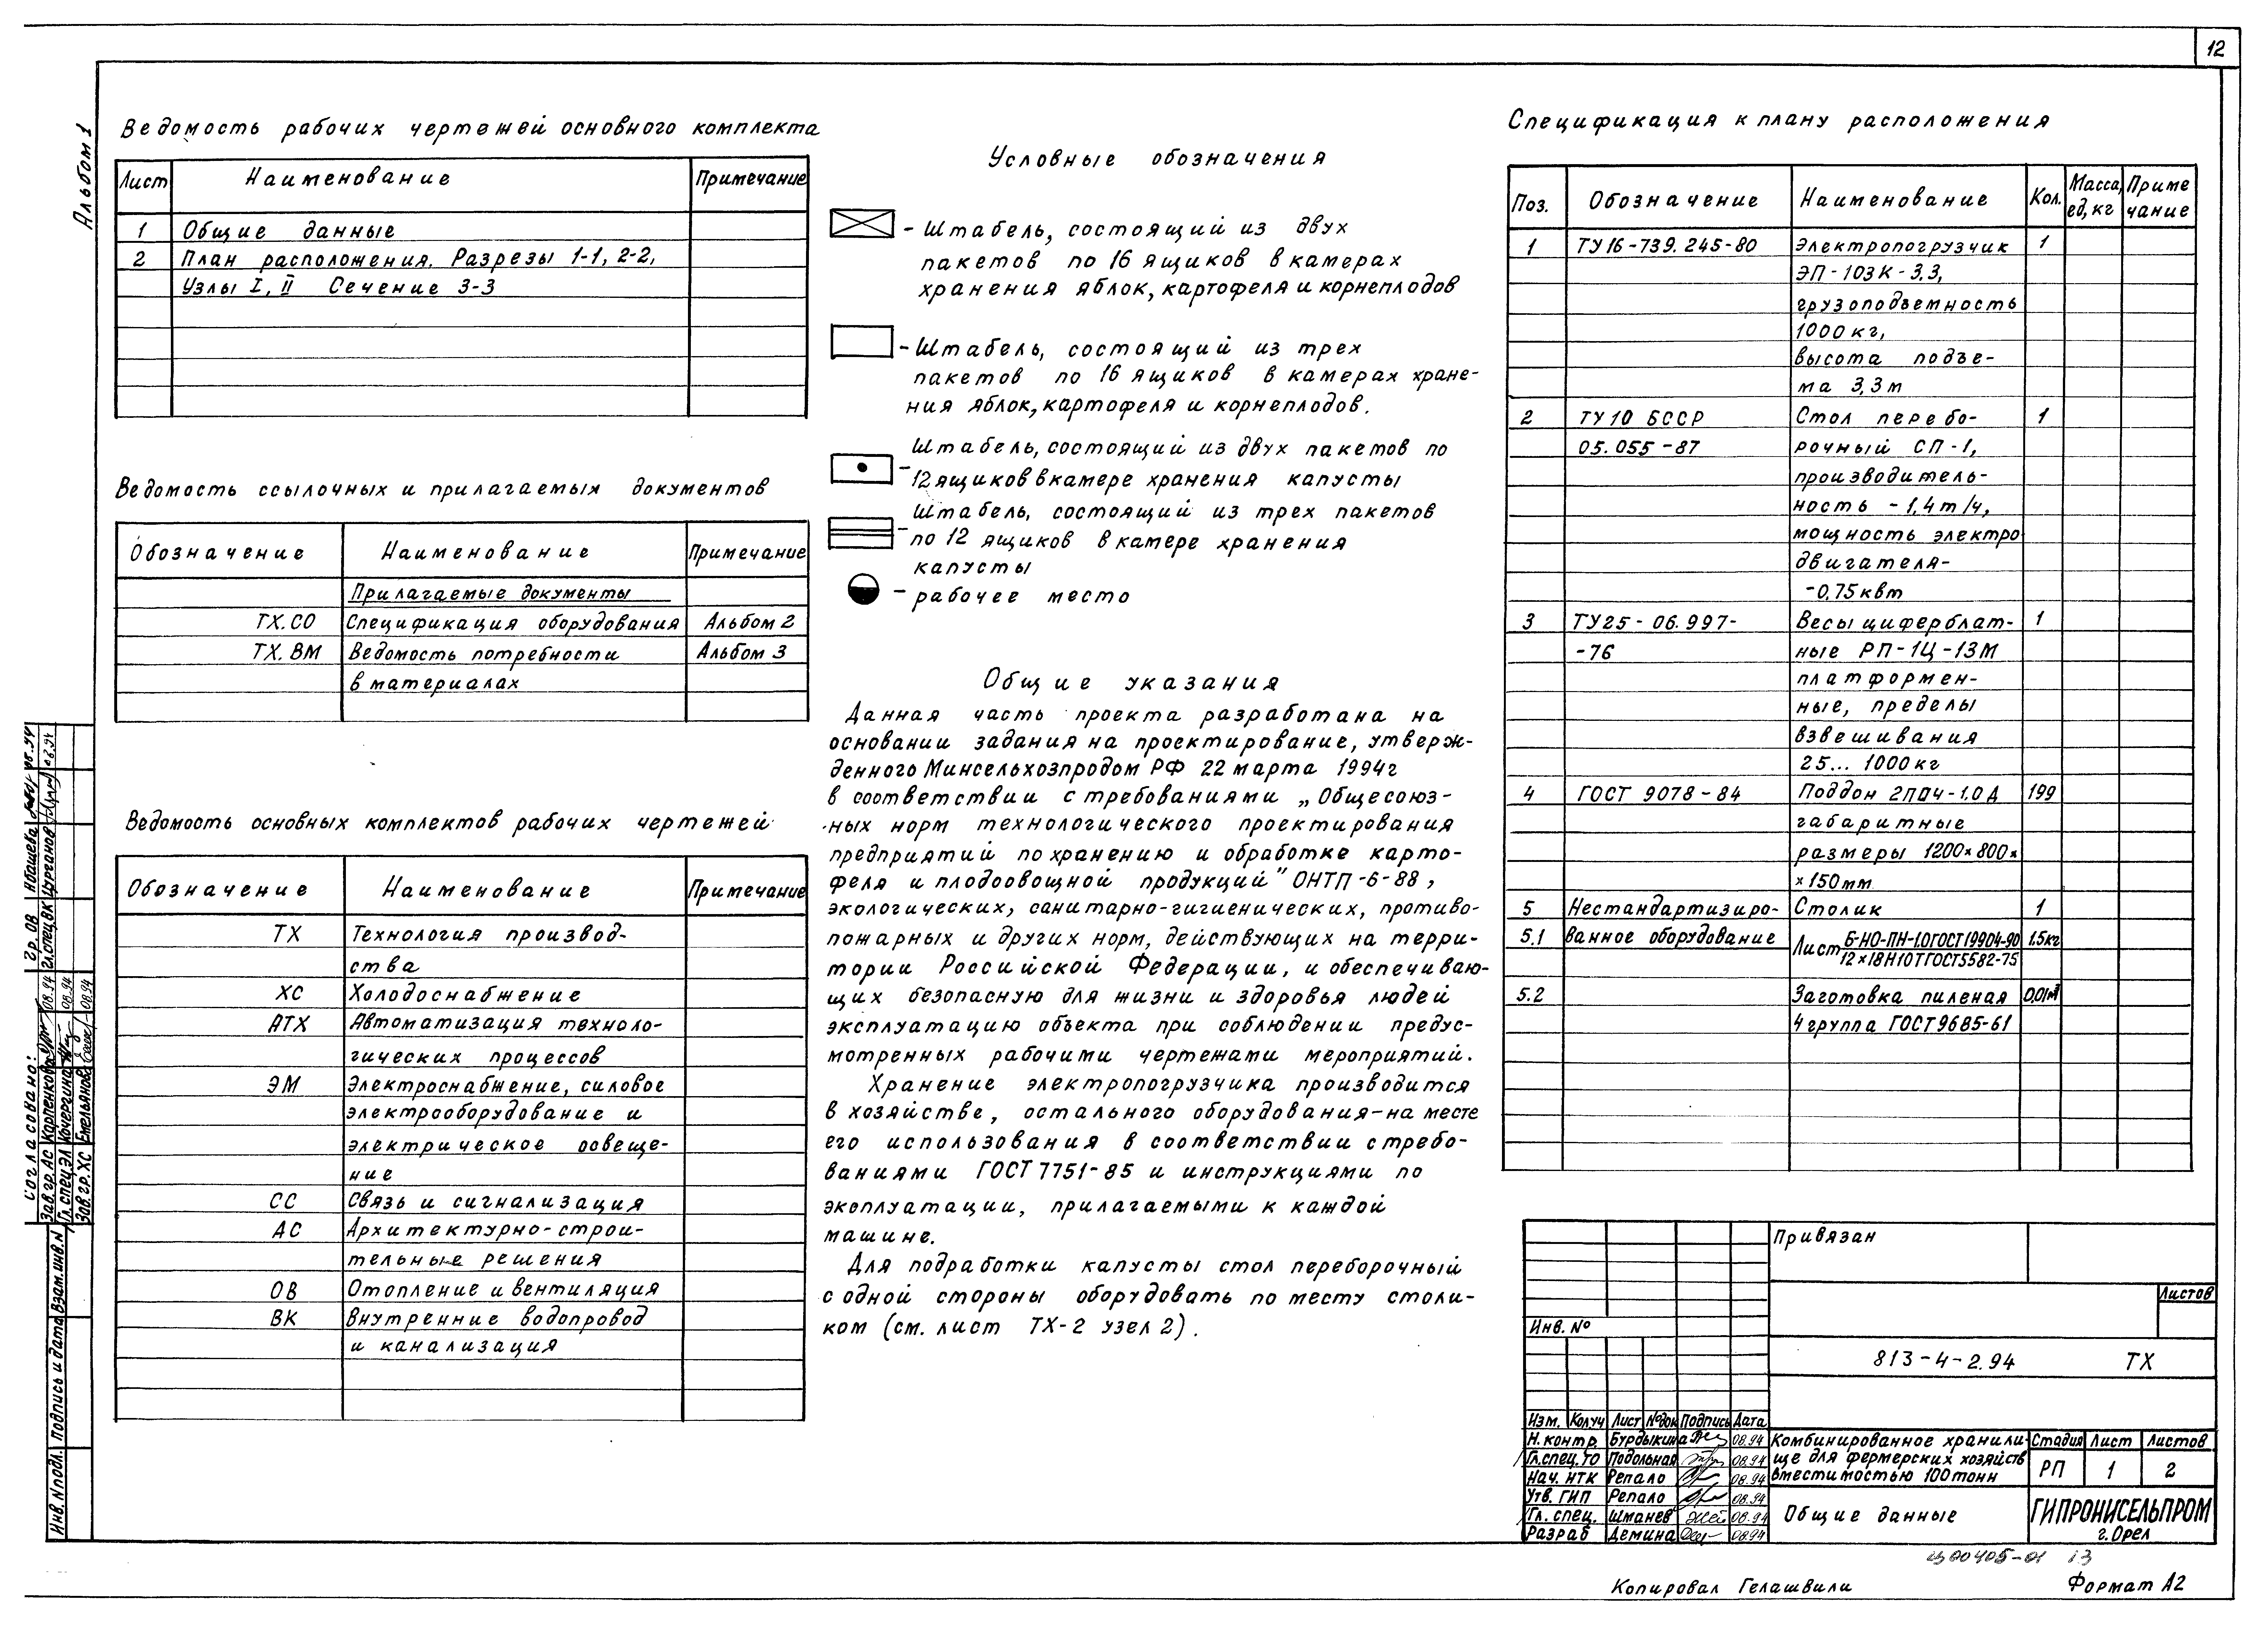 12
Альбом 1
Ведомость рабочих чертежей основного комплекта
Лист Наименование Примечание
1 Общие данные
2 План расположения. Разрезы 1-1, 2-2,
Узлы I, II Сечение 3-3
Ведомость ссылочных и прилагаемых документов
Обозначение Наименование Примечание
Прилагаемые документы
ТХ.СО Спецификация оборудования Альбом 2
ТХ.ВМ Ведомость потребности Альбом 3
в материалах
Ведомость основных комплектов рабочих чертежей
Обозначение Наименование Примечание
ТХ Технология производ-
ства
ХС Холодоснабжение
АТХ Автоматизация техноло-
гических процессов
ЭМ Электроснабжение, силовое
электрооборудование и
электрическое освеще-
ние
СС Связь и сигнализация
АС Архитектурно-строи-
тельные решения
ОВ Отопление и вентиляция
ВК Внутренние водопровод
и канализация
Условные обозначения
- Штабель, состоящий из двух
пакетов по 16 ящиков в камерах
хранения яблок, картофеля и корнеплодов
- Штабель, состоящий из трех
пакетов по 16 ящиков в камерах хране-
ния яблок, картофеля и корнеплодов.
Штабель, состоящий из двух пакетов по
- 12 ящиков в камере хранения капусты
Штабель, состоящий из трех пакетов
- по 12 ящиков в камере хранения
капусты
- рабочее место
Общие указания
Данная часть проекта разработана на
основании задания на проектирование, утверж-
денного Минсельхозпродом РФ 22 марта 1994г
в соответствии с требованиями „Общесоюз-
ных норм технологического проектирования
предприятий по хранению и обработке карто-
феля и плодоовощной продукций" ОНТП-6-88,
экологических, санитарно-гигиенических, противо-
пожарных и других норм, действующих на терри-
тории Российской Федерации, и обеспечиваю-
щих безопасную для жизни и здоровья людей
эксплуатацию объекта при соблюдении предус-
мотренных рабочими чертежами мероприятий.
Хранение электропогрузчика производится
в хозяйстве, остального оборудования-на месте
его использования в соответствии с требо-
ваниями ГОСТ 7751-85 и инструкциями по
эксплуатации, прилагаемыми к каждой
машине.
Для подработки капусты стол переборочный
с одной стороны оборудовать по месту столи-
ком (см. лист ТХ-2 узел 2).
Спецификация к плану расположения
Поз. Обозначение Наименование Кол. Масса, ед, кг Приме чание
1 ТУ16-739.245-80 Электропогрузчик 1
ЭП-103К-3,3,
грузоподъемность
1000 кг,
высота подъе-
ма 3,3м
2 ТУ10 БССР Стол перебо- 1
05.055-87 рочный СП-1,
производитель-
ность -1,4т/ч,
мощность электро
двигателя-
-0,75квт
3 ТУ25-06.997- Весы циферблат- 1
-76 ные РП-1Ц-13М
платформен-
ные, пределы
взвешивания
25... 1000 кг
4 ГОСТ 9078-84 Поддон 2ПО4-1.0Д 199
габаритные
размеры 1200×800×
×150мм
5 Нестандартизиро- Столик 1
5.1 ванное оборудование Лист Б-НО-ПН-1.0 ГОСТ 19904-90 1.5кг
12×18Н10Т ГОСТ5582-75
5.2 Заготовка пиленая 0,01м³
4 группа ГОСТ 9685-61
Привязан
Листов
Инв. №
813-4-2.94 ТХ
Изм. Кол.уч Лист №док Подпись Дата
Н. контр. Бурдыкина 08.94
Гл.спец.ТО Подольная 08.94
Нач. НТК Репало 08.94
Утв. ГИП Репало 08.94
Гл. спец. Шманев 08.94
Разраб Демина 08.94
Комбинированное хранили-
ще для фермерских хозяйств
вместимостью 100 тонн
Стадия Лист Листов
РП 1 2
Общие данные
ГИПРОНИСЕЛЬПРОМ
г. Орел
Копировал Гелашвили
Формат А2
Согласовано:
Зав.гр.АС Карпенкова 08.94
Гл. спец ЭЛ Кочергина 08.94
Зав.гр.ХС Емельянова 08.94
Гр. ОВ 08.94
Гл.спец.ВК Цурганов 08.94
Инв. № подл. Подпись и дата Взам.инв.N